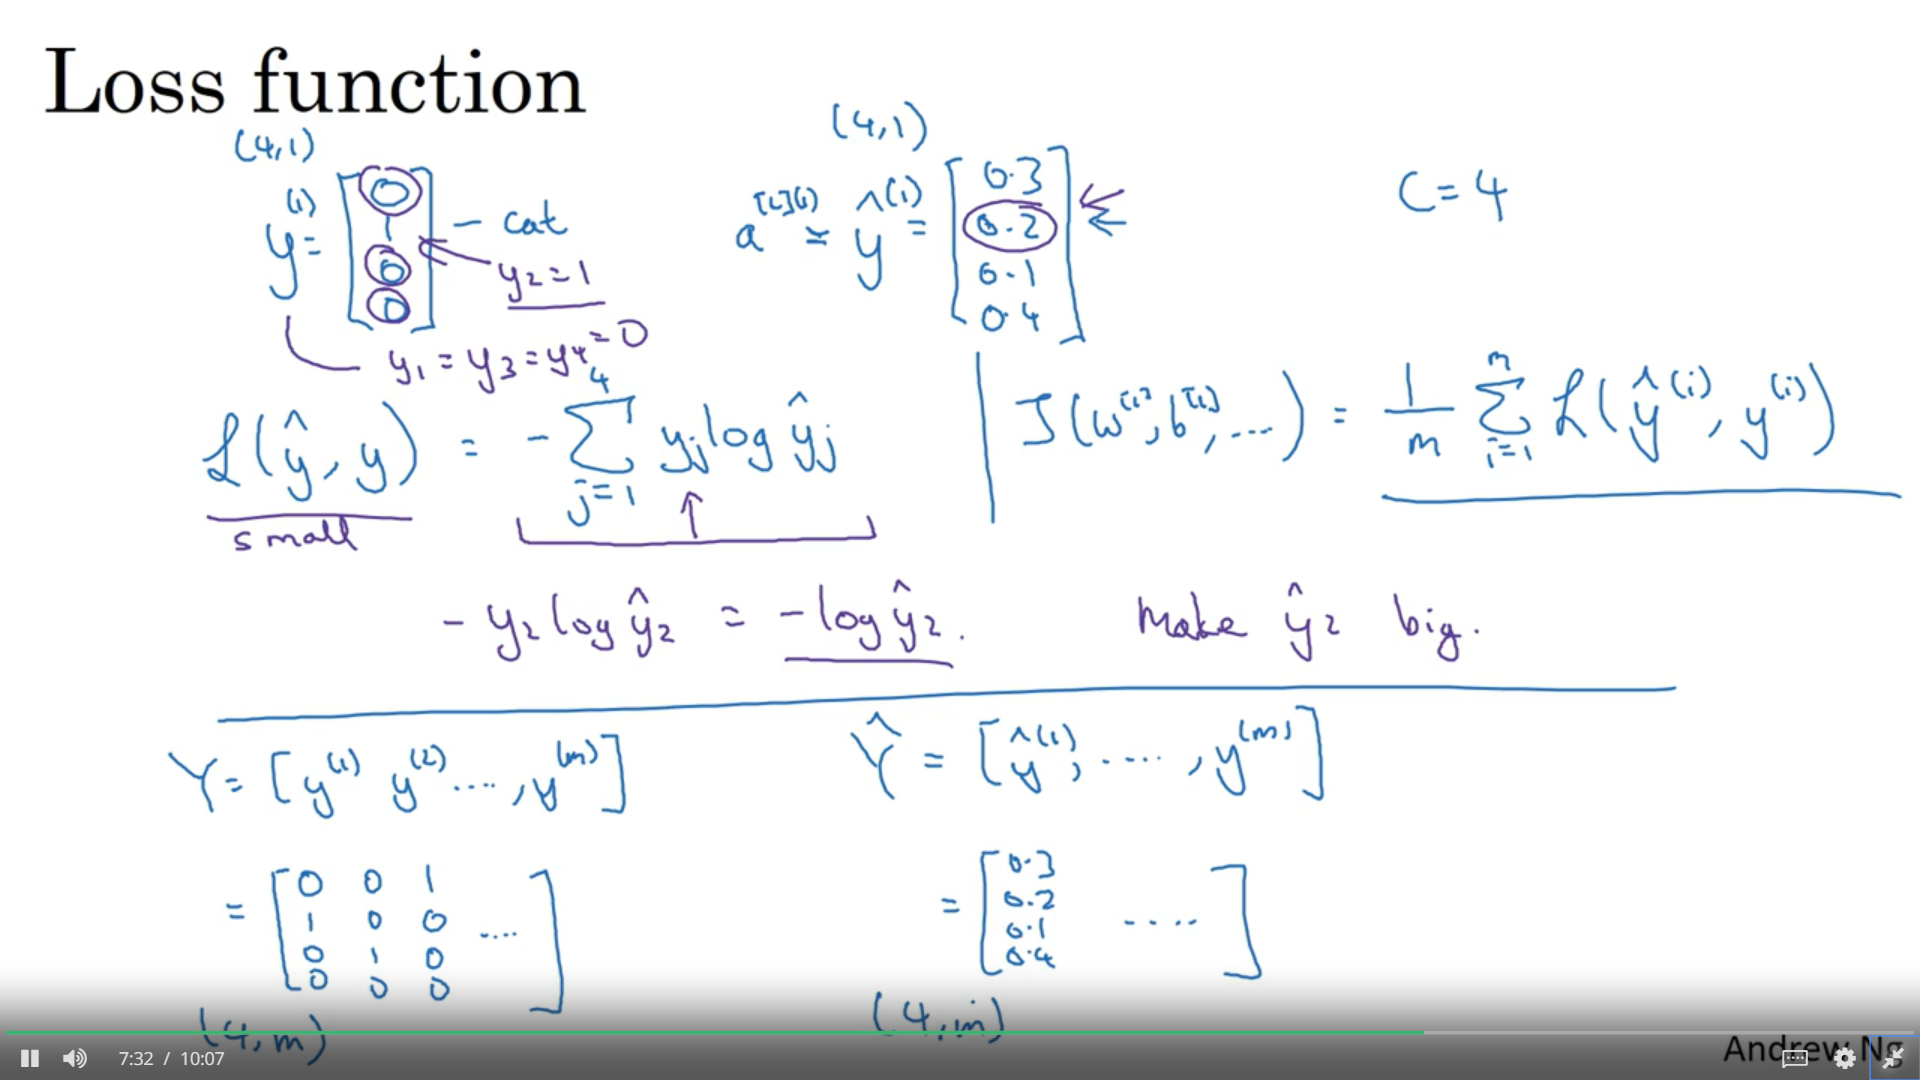 Loss function
(4,1)
y⁽¹⁾ = [0 1 0 0] - cat
y₂=1
y₁ = y₃ = y₄ = 0
(4,1)
a^[L](1) = ŷ⁽¹⁾ = [0.3 0.2 0.1 0.4]
C=4
L(ŷ, y) = - Σ_{j=1}^{4} yⱼ log ŷⱼ
small
J(w^[1], b^[1], ....) = 1/m Σ_{i=1}^{m} L(ŷ⁽ⁱ⁾, y⁽ⁱ⁾)
- y₂ log ŷ₂ = - log ŷ₂. Make ŷ₂ big.
Y = [y⁽¹⁾ y⁽²⁾ ...., y⁽ᵐ⁾]
= [0 0 1
1 0 0 ....
0 1 0
0 0 0]
(4,m)
Ŷ = [ŷ⁽¹⁾, ...., y⁽ᵐ⁾]
= [0.3
0.2 ....
0.1
0.4]
(4,m)
7:32 / 10:07
Andrew Ng